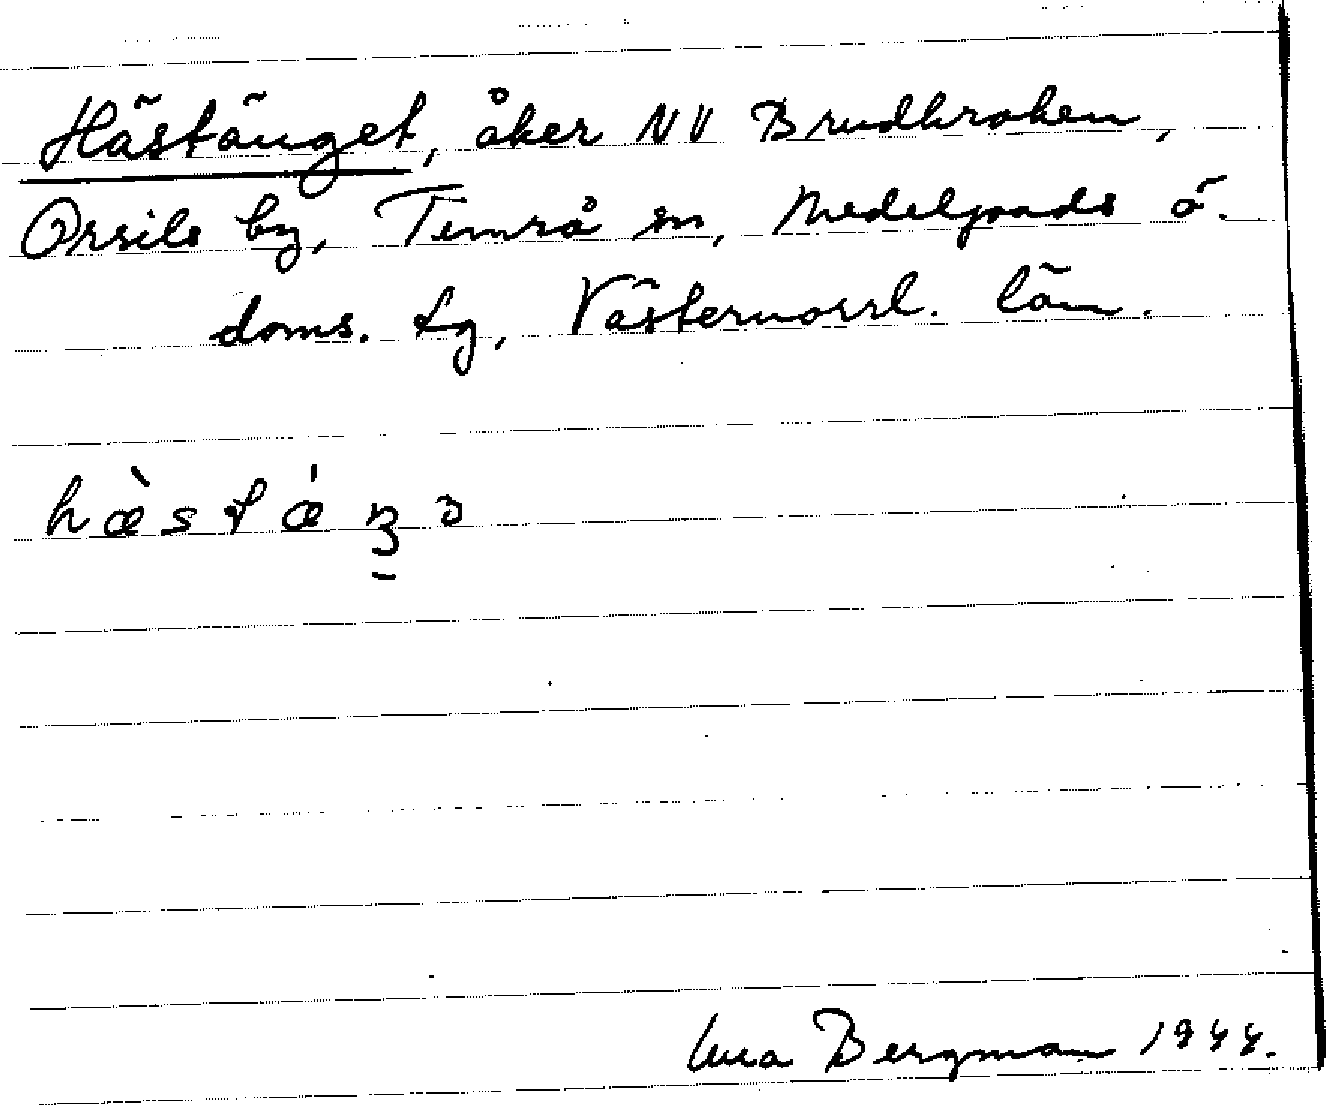 Hästänget, åker NV Brudkroken,
Orsils by, Timrå sn, Medelpads ö.
doms. tg, Västernorrl. län.
hæ̀stǽŋ̠ə
Una Bergman 1944.